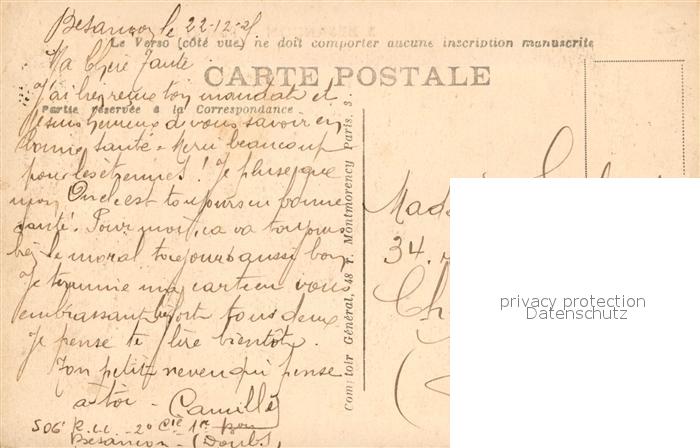 Besançon le 22-12-25
Le Verso (côté vue) ne doit comporter aucune inscription manuscrite
Ma Chère Tante
CARTE POSTALE
J'ai bien reçu ton mandat et
Partie réservée à la Correspondance
je suis heureux de vous savoir en
bonne santé. Merci beaucoup
pour les étrennes! Je pense que
mon Oncle est toujours en bonne
santé. Pour moi, ça va toujours
le moral toujours aussi bon
Je termine ma carte en vous
embrassant bien fort tous deux
Je pense te lire bientôt.
Ton petit neveu qui pense
à toi - Camille
506 R.C.C - 20 Cie 1er
Besançon - (Doubs)
Comptoir Général, 48 r. Montmorency Paris. 3.
34.
privacy protection
Datenschutz